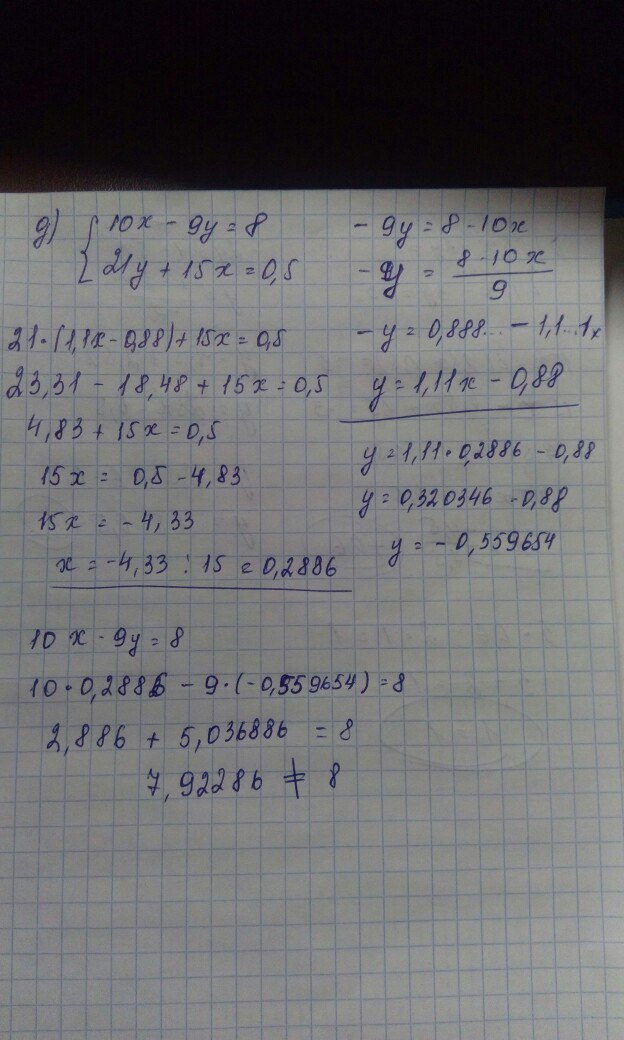 д) { 10x - 9y = 8
21y + 15x = 0,5
- 9y = 8 - 10x
- y = \frac{8 - 10x}{9}
- y = 0,888... - 1,1...1x
y = 1,11x - 0,88
21·(1,1x - 0,88) + 15x = 0,5
23,31 - 18,48 + 15x = 0,5
4,83 + 15x = 0,5
15x = 0,5 - 4,83
15x = - 4,33
x = -4,33 : 15 = 0,2886
y = 1,11·0,2886 - 0,88
y = 0,320346 - 0,88
y = - 0,559654
10x - 9y = 8
10·0,2886 - 9·(-0,559654) = 8
2,886 + 5,036886 = 8
7,92286 ≠ 8